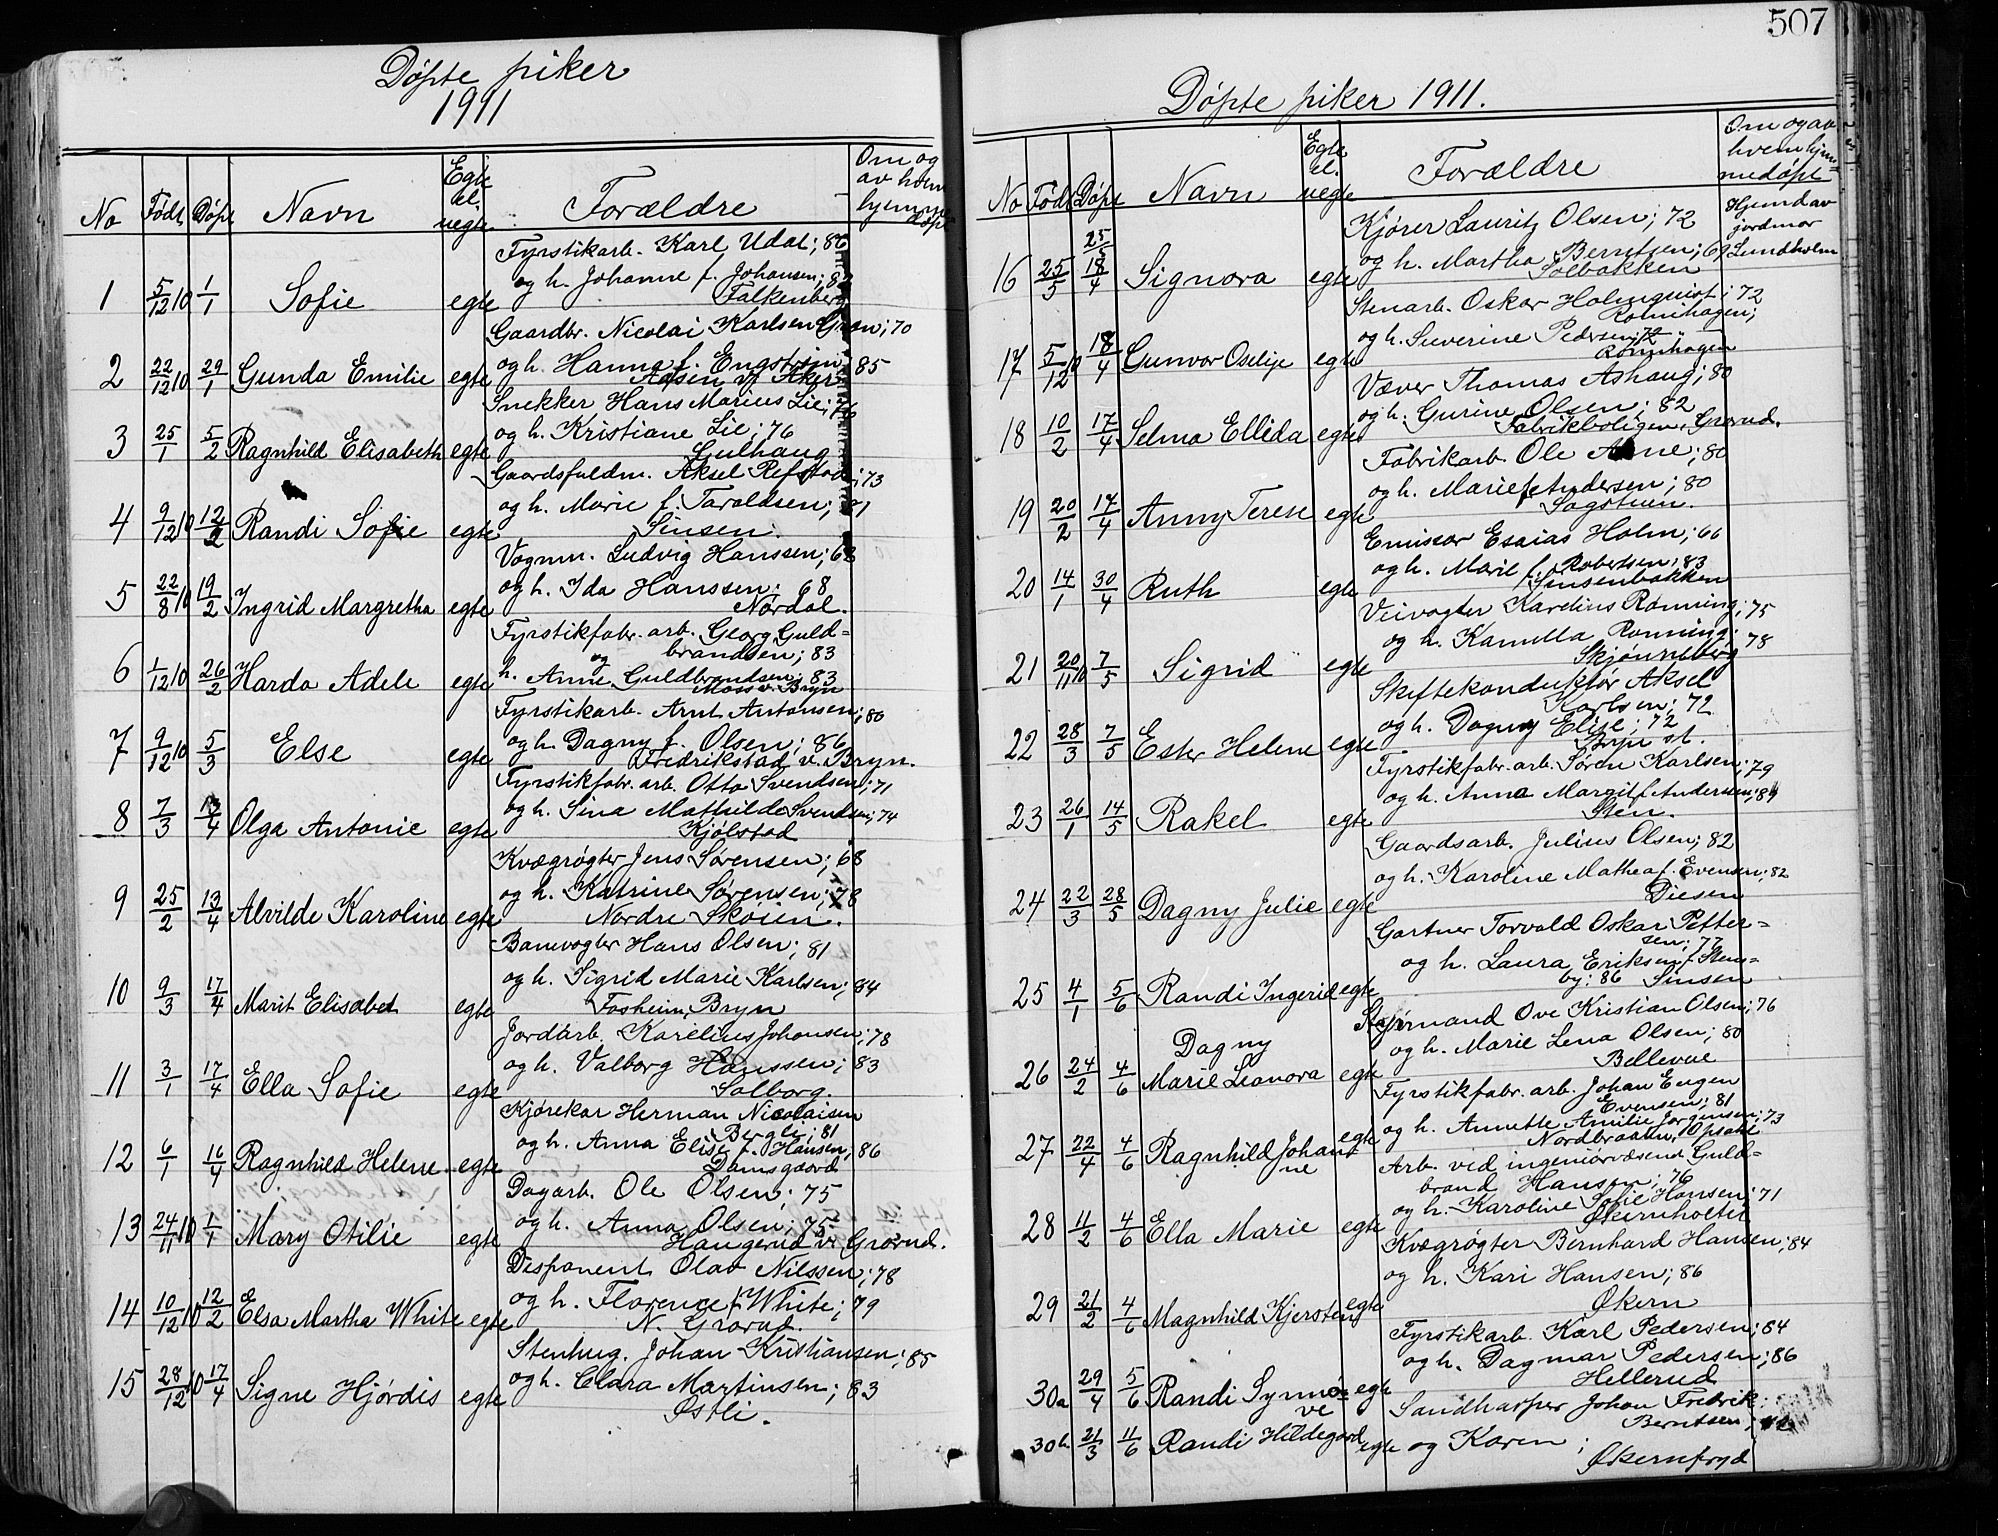 Døpte piker
1911
No Født Døpt Navn Egte el. uegte Forældre Om og av hvem hjemmedøpt
Fyrstikarb. Karl Udal; 86
og h. Johanne f. Johansen; 87
1 5/12 10 1/1 Sofie egte Falkenberg
Gaardbr. Nicolai Karlsen Grøn; 70
2 22/12 10 29/1 Gunda Emilie egte og h. Hanna f. Engstrøm 85
v/ Aker
Snekker Hans Marius Lie; 76
3 25/1 5/2 Ragnhild Elisabeth egte og h. Kristiane Lie; 76
Lulhaug
Gaardsfuldm. Aksel Refstad; 73
4 9/12 10 12/2 Randi Sofie egte og h. Marie f. Taraldsen;
Sinsen.
Vognm. Ludvig Hanssen; 68
5 22/8 10 19/2 Ingrid Margretha egte og h. Ida Hanssen; 68
Nordal.
Fyrstikfabr. arb. Georg Guld=
brandsen; 83
6 1/12 10 26/2 Harda Adele egte og h. Anne Guldbrandsen; 83
Moss v. Bryn
Fyrstikarb. Arnt Antonsen; 80
7 9/12 10 5/3 Else egte og h. Dagny f. Olsen; 86
Fredrikstad v. Bryn.
Fyrstikfabr. arb. Otto Svendsen; 71
8 7/3 13/4 Olga Antonie egte og h. Sina Mathilde Svendsen; 74
Kjølstad
Kvægrøgter Jens Sørensen; 68
9 25/2 13/4 Alvilde Karoline egte og h. Katrine Sørensen; 78
Nordre Skøien.
Banevogter Hans Olsen; 81
10 9/3 17/4 Marit Elisabet egte og h. Sigrid Marie Karlsen; 84
Fosheim, Bryn
Jordarb. Karelius Johansen; 78
11 3/1 17/4 Ella Sofie egte og h. Valborg Hanssen; 83
Solborg.
Kjørekar Herman Nicolaisen
Bergli; 81
12 6/1 16/4 Ragnhild Helene egte og h. Anna Elise f. Hansen; 86
Damsgaard
Dagarb. Ole Olsen; 75
13 24/11 10 1/1 Mary Otilie egte og h. Anna Olsen; 75
Haugerud v. Grorud.
Disponent Olav Nilssen; 78
14 10/12 10 12/2 Elsa Martha White egte og h. Florence f. White; 79
N. Grorud.
Stenhug. Johan Kristiansen; 85
15 28/12 10 17/4 Signe Hjørdis egte og h. Clara Martinsen; 83
Østli.
507
Døpte piker 1911.
No Født Døpt Navn Egte el. uegte Forældre Om og av hvem hjemmedøpt
Kjører Lauritz Olsen; 72 Hjemd av jordmor Lundholm
16 25/5 25/6 18/4 Signora egte og h. Martha Berntsen; 69
Solbakken
Stenarb. Oskar Holmquist; 72
Romihagen;
17 5/12 10 18/4 Gunvor Oselije egte og h. Severine Pedersen; 72
Romihagen
Væver Thomas Ashaug; 80
18 10/2 17/4 Selma Ellida egte og h. Gurine Olsen; 82
Fabrikboligen, Grorud.
Fabrikarb. Ole Aune; 80
19 20/2 17/4 Anny Terese egte og h. Marie f. Andersen; 80
Sagstuen.
Emissær Esaias Holm; 66
20 14/1 30/4 Ruth egte og h. Marie f. Robertsen; 83
Sinsenbakken
Veivogter Karelius Rønning; 75
21 20/11 10 7/5 Sigrid egte og h. Kamilla Rønning; 78
Skjønneberg
Skiftekonduktør Aksel
Karlsen; 72
22 28/3 7/5 Ester Helene egte og h. Dagny Elise; 72
Bryn st.
Fyrstikfabr. arb. Søren Karlsen; 79
23 26/1 14/5 Rakel egte og h. Anna Margit f. Anderssen; 84
Sten.
Gaardsarb. Julius Olsen; 82
24 22/3 28/5 Dagny Julie egte og h. Karoline Mathea f. Evensen; 82
Diesen
Gartner Torvald Oskar Petter=
sen; 77
25 4/1 5/6 Randi Ingerid egte og h. Laura Eriksen f. Stens=
by; 86 Sinsen
Styrmand Ove Kristian Olsen; 76
26 24/2 4/6 Dagny Marie Leonora egte og h. Marie Lena Olsen; 80
Bellevue
Fyrstikfabr. arb. Johan Eugen
Evensen; 81
27 22/4 4/6 Ragnhild Johanne egte og h. Annette Amilie Jørgensen; 73
Nordbraaten, Opsahl
Arb. ved ingeniørvæsenet Guld=
brand Hansen; 76
28 11/2 4/6 Ella Marie egte og h. Karoline Sofie Hansen; 71
Økernholtet
Kvægrøgter Bernhard Hansen; 84
29 21/2 4/6 Magnhild Kjersten egte og h. Kari Hansen; 86
Økern
Fyrstikarb. Karl Pedersen; 84
30a 29/4 5/6 Randi Synnøve egte og h. Dagmar Pedersen; 86
Hellerud
Sandharper Johan Fredrik
Berntsen;
30b. 21/3 11/6 Randi Hildegard egte og Karen;
Økernfryd